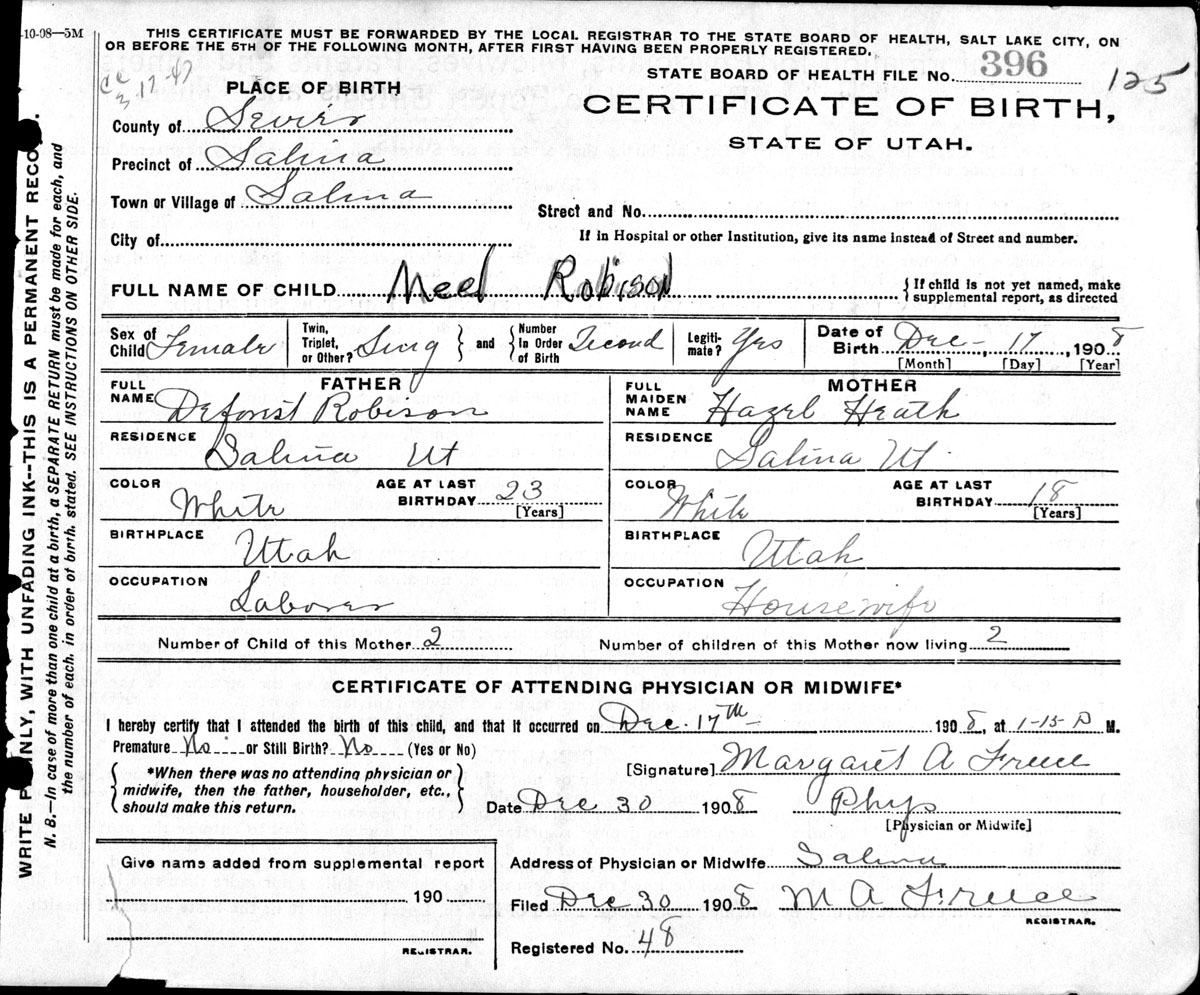 -10-08—5M
THIS CERTIFICATE MUST BE FORWARDED BY THE LOCAL REGISTRAR TO THE STATE BOARD OF HEALTH, SALT LAKE CITY, ON
OR BEFORE THE 5TH OF THE FOLLOWING MONTH, AFTER FIRST HAVING BEEN PROPERLY REGISTERED.
STATE BOARD OF HEALTH FILE NO. 396 125
3-17-47
PLACE OF BIRTH
CERTIFICATE OF BIRTH,
STATE OF UTAH.
County of Sevier
Precinct of Salina
Town or Village of Salina
Street and No.
City of
If in Hospital or other Institution, give its name instead of Street and number.
FULL NAME OF CHILD Neel Robison
{If child is not yet named, make
supplemental report, as directed
Sex of Child Female
Twin, Triplet, or Other? Sing } and { Number In Order of Birth Second
Legiti- mate? Yes
Date of Birth Dec - 17, 1908
[Month] [Day] [Year]
FATHER
FULL NAME Deforist Robison
RESIDENCE Salina Ut
COLOR White
AGE AT LAST BIRTHDAY 23
[Years]
BIRTHPLACE Utah
OCCUPATION Laborer
MOTHER
FULL MAIDEN NAME Hazel Heath
RESIDENCE Salina Ut.
COLOR White
AGE AT LAST BIRTHDAY 18
[Years]
BIRTHPLACE Utah
OCCUPATION Housewife
Number of Child of this Mother 2
Number of children of this Mother now living 2
CERTIFICATE OF ATTENDING PHYSICIAN OR MIDWIFE*
I hereby certify that I attended the birth of this child, and that it occurred on Dec. 17th 1908, at 1-15-P M.
Premature No or Still Birth? No (Yes or No)
{*When there was no attending physician or
midwife, then the father, householder, etc.,
should make this return.}
[Signature] Margaret A Freece
Date Dec 30 1908 Phys
[Physician or Midwife]
Give name added from supplemental report
190
REGISTRAR.
Address of Physician or Midwife Salina
Filed Dec 30 1908 M A Freece
REGISTRAR.
Registered No. 48
WRITE PLAINLY, WITH UNFADING INK--THIS IS A PERMANENT RECORD.
N. B.—In case of more than one child at a birth, a SEPARATE RETURN must be made for each, and
the number of each, in order of birth, stated. SEE INSTRUCTIONS ON OTHER SIDE.